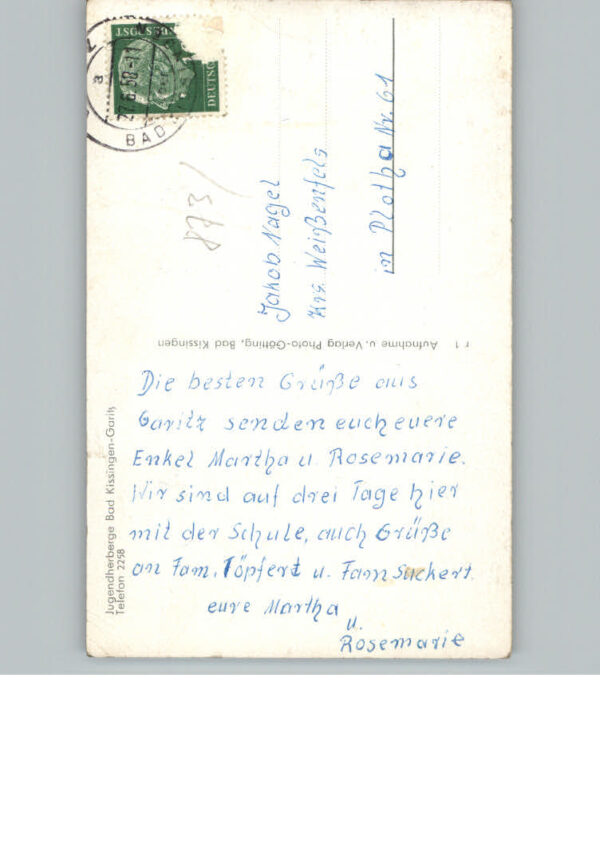 DEUTSCHE
BUNDESPOST
BAD
873
Jakob Nagel
Krs. Weißenfels
in Plotha Nr. 61
r 1 Aufnahme u. Verlag Photo-Götting, Bad Kissingen
Jugendherberge Bad Kissingen-Garitz
Telefon 2258
Die besten Grüße aus
Garitz senden euch euere
Enkel Martha u. Rosemarie.
Wir sind auf drei Tage hier
mit der Schule, auch Grüße
an Fam. Töpfert u. Fam Suckert
eure Martha
u.
Rosemarie